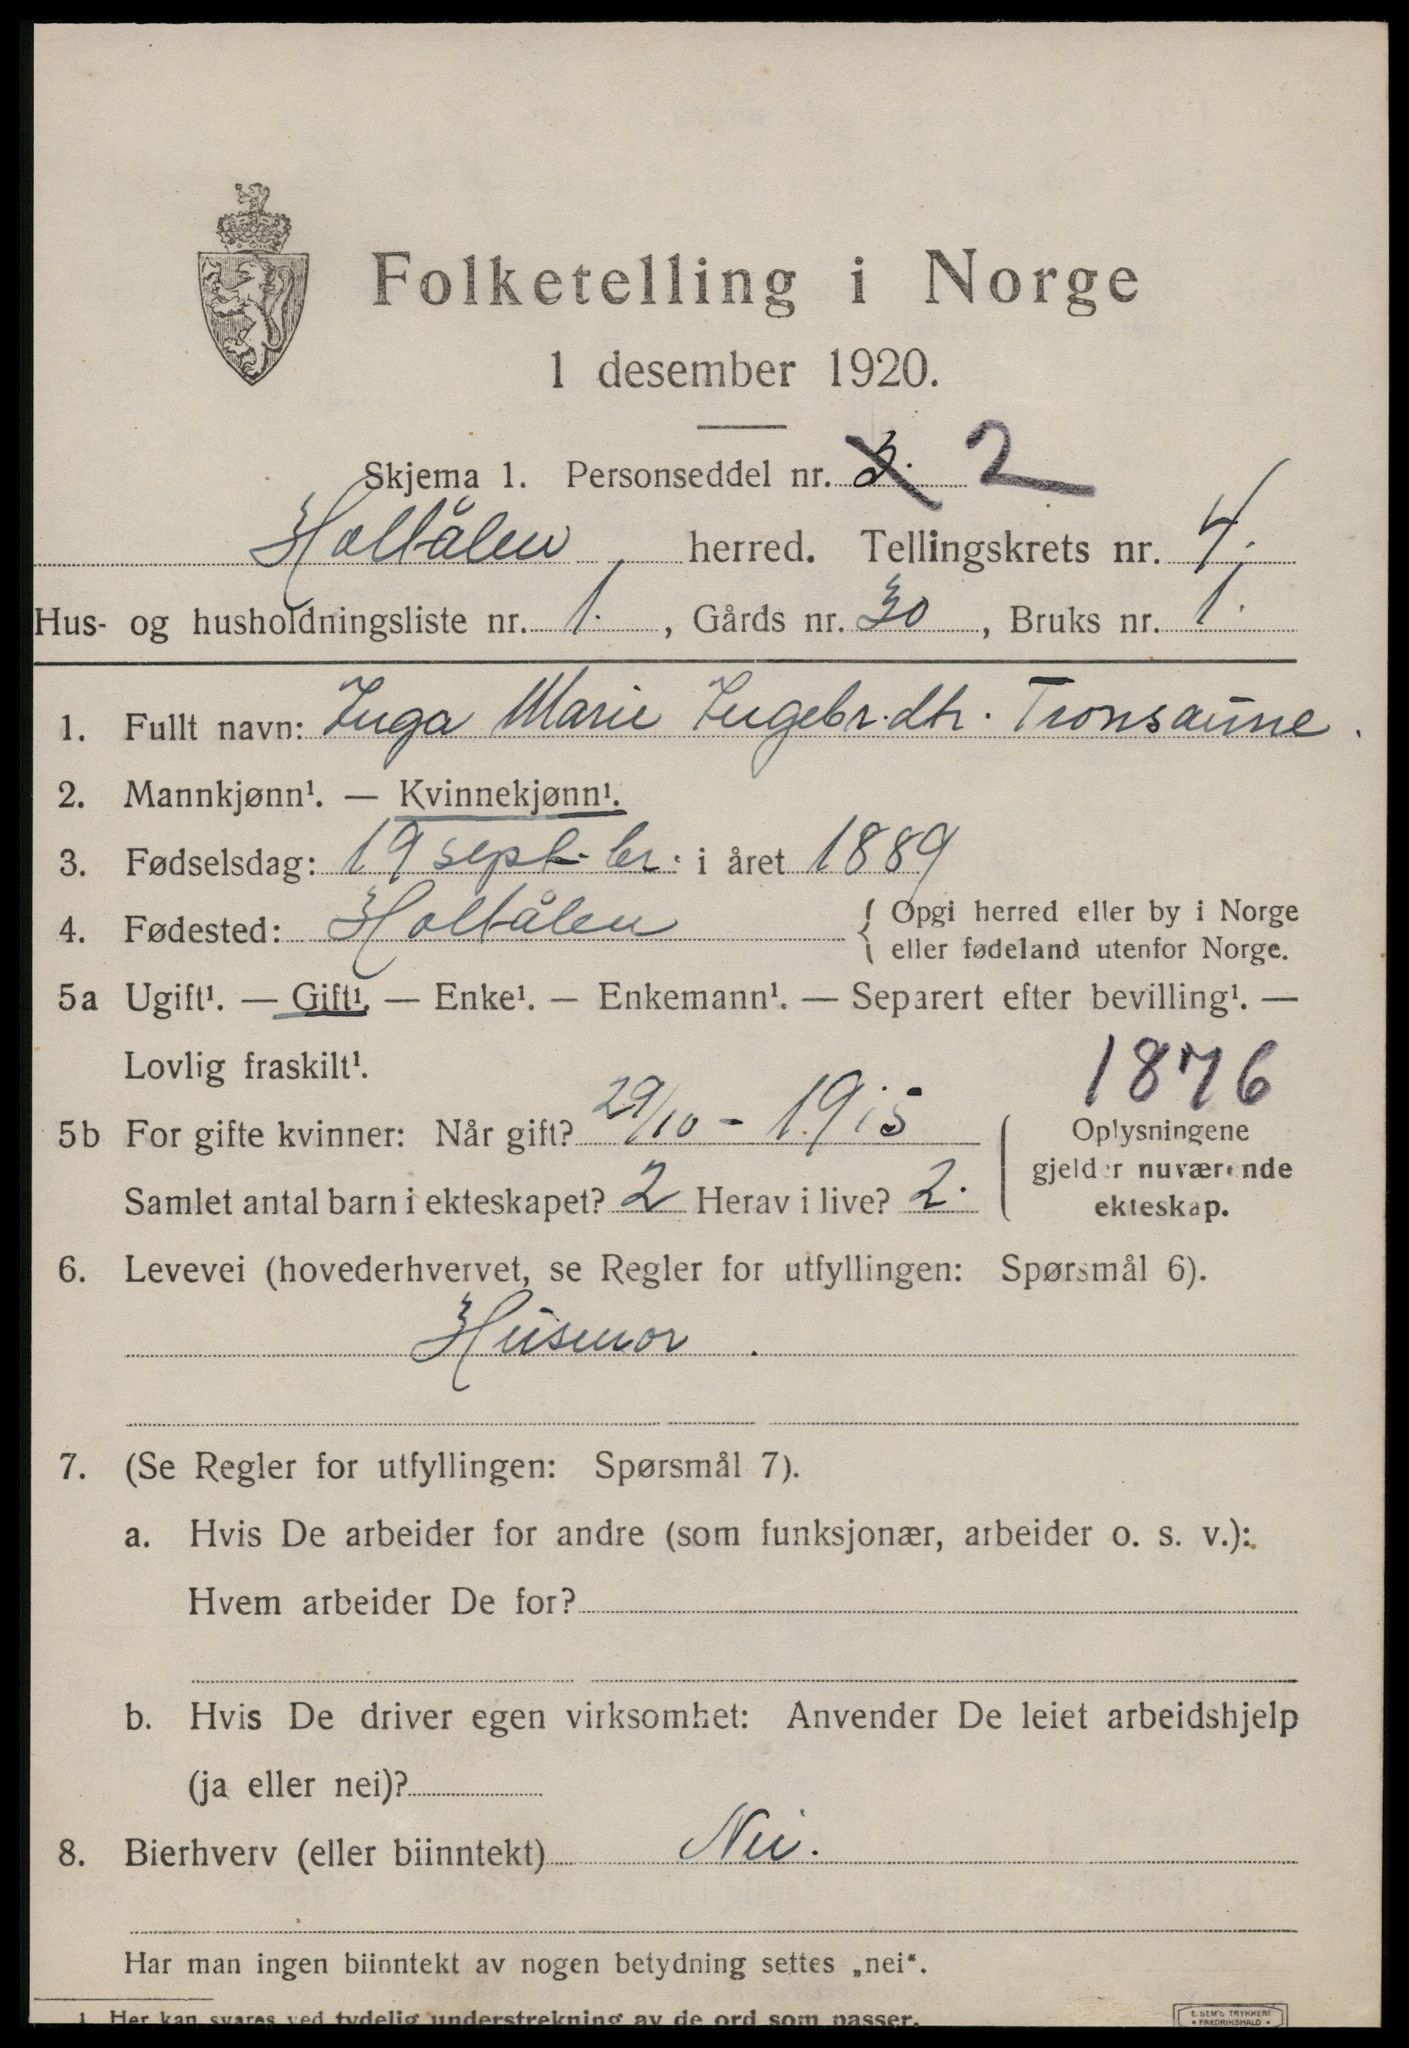 Folketelling i Norge
1 desember 1920.
Skjema 1. Personseddel nr. 3. 2
Holtålen herred. Tellingskrets nr. 4.
Hus- og husholdningsliste nr. 1., Gårds nr. 30, Bruks nr. 1.
1. Fullt navn: Inga Marie Ingebr.dtr. Tronsaune.
2. Mannkjønn¹. — Kvinnekjønn¹.
3. Fødselsdag: 19 sept.br. i året 1889
4. Fødested: Holtålen { Opgi herred eller by i Norge
eller fødeland utenfor Norge.
5a Ugift¹. — Gift¹. — Enke¹. — Enkemann¹. — Separert efter bevilling¹. —
Lovlig fraskilt¹.
1876
5b For gifte kvinner: Når gift? 29/10 - 1915
Samlet antal barn i ekteskapet? 2 Herav i live? 2.
Oplysningene
gjelder nuværende
ekteskap.
6. Levevei (hovederhvervet, se Regler for utfyllingen: Spørsmål 6).
Husmor.
7. (Se Regler for utfyllingen: Spørsmål 7).
a. Hvis De arbeider for andre (som funksjonær, arbeider o. s. v.):
Hvem arbeider De for?
b. Hvis De driver egen virksomhet: Anvender De leiet arbeidshjelp
(ja eller nei)?
8. Bierhverv (eller biinntekt) Nei.
Har man ingen biinntekt av nogen betydning settes „nei“.
1. Her kan svares ved tydelig understrekning av de ord som passer.
E. SEM'S TRYKKERI
• FREDRIKSHALD •